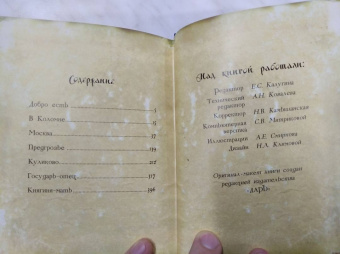 Содержание
Добро есть 5
В Коломне
Москва
Предгрозье
Куликово
Государь-отец
Княгиня-мать
Над книгой работали:
Редактор Е.С. Казутина
Технический редактор А.Н. Ковалева
Корректор Н.В.
Компьютерная верстка С.В.
Иллюстрации А.Е. Смирнова
Дизайн Н.А. Кленовой
Оригинал-макет книги создан
редакцией издательства